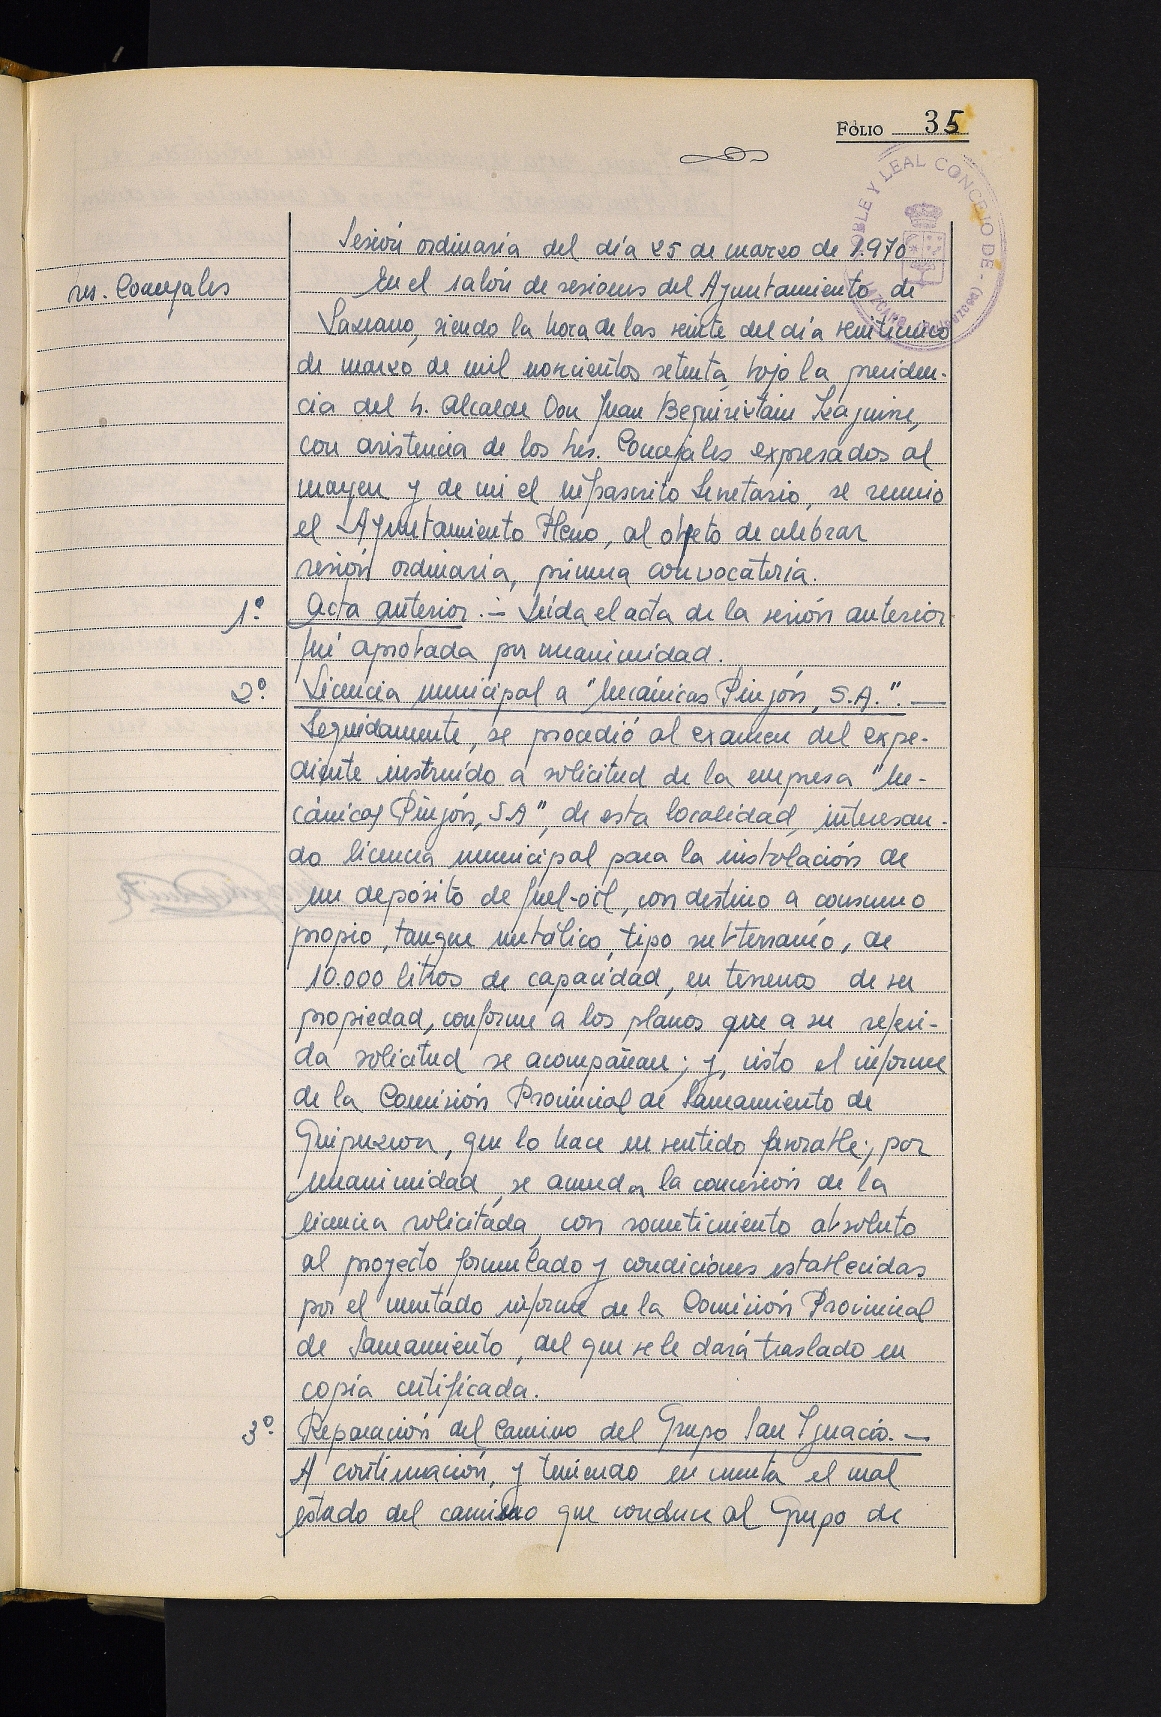 FOLIO 35
NOBLE Y LEAL CONCEJO DE - LAZCANO (Guipúzcoa)
Sesión ordinaria del día 25 de marzo de 1970
res. Concejales
En el salón de sesiones del Ayuntamiento de
Lazcano, siendo la hora de las veinte del día veinticinco
de marzo de mil novecientos setenta, bajo la presiden-
cia del Sr. Alcalde Don Juan Beguiristain Izaguirre,
con asistencia de los Sres. Concejales expresados al
margen y de mi el infrascrito Secretario, se reunió
el Ayuntamiento Pleno, al objeto de celebrar
sesión ordinaria, primera convocatoria.
1º. Acta anterior. - Leída el acta de la sesión anterior
fué aprobada por unanimidad.
2º. Licencia municipal a "Mecánicas Pinjón, S.A.". —
Seguidamente, se procedió al examen del expe-
diente instruído a solicitud de la empresa "Me-
cánicas Pinjón, S.A", de esta localidad, interesan-
do licencia municipal para la instalación de
un depósito de fuel-oil, con destino a consumo
propio, tanque metálico, tipo subterraneo, de
10.000 litros de capacidad, en terrenos de su
propiedad, conforme a los planos que a su referi-
da solicitud se acompañan; y, visto el informe
de la Comisión Provincial de Saneamiento de
Guipuzcoa, que lo hace en sentido favorable; por
unanimidad, se acuerda la concesión de la
licencia solicitada, con sometimiento absoluto
al proyecto formulado y condiciones establecidas
por el mentado informe de la Comisión Provincial
de Saneamiento, del que se le dará traslado en
copia certificada.
3º. Reparación del Camino del Grupo San Ignacio. —
A continuación, y teniendo en cuenta el mal
estado del camino que conduce al Grupo de